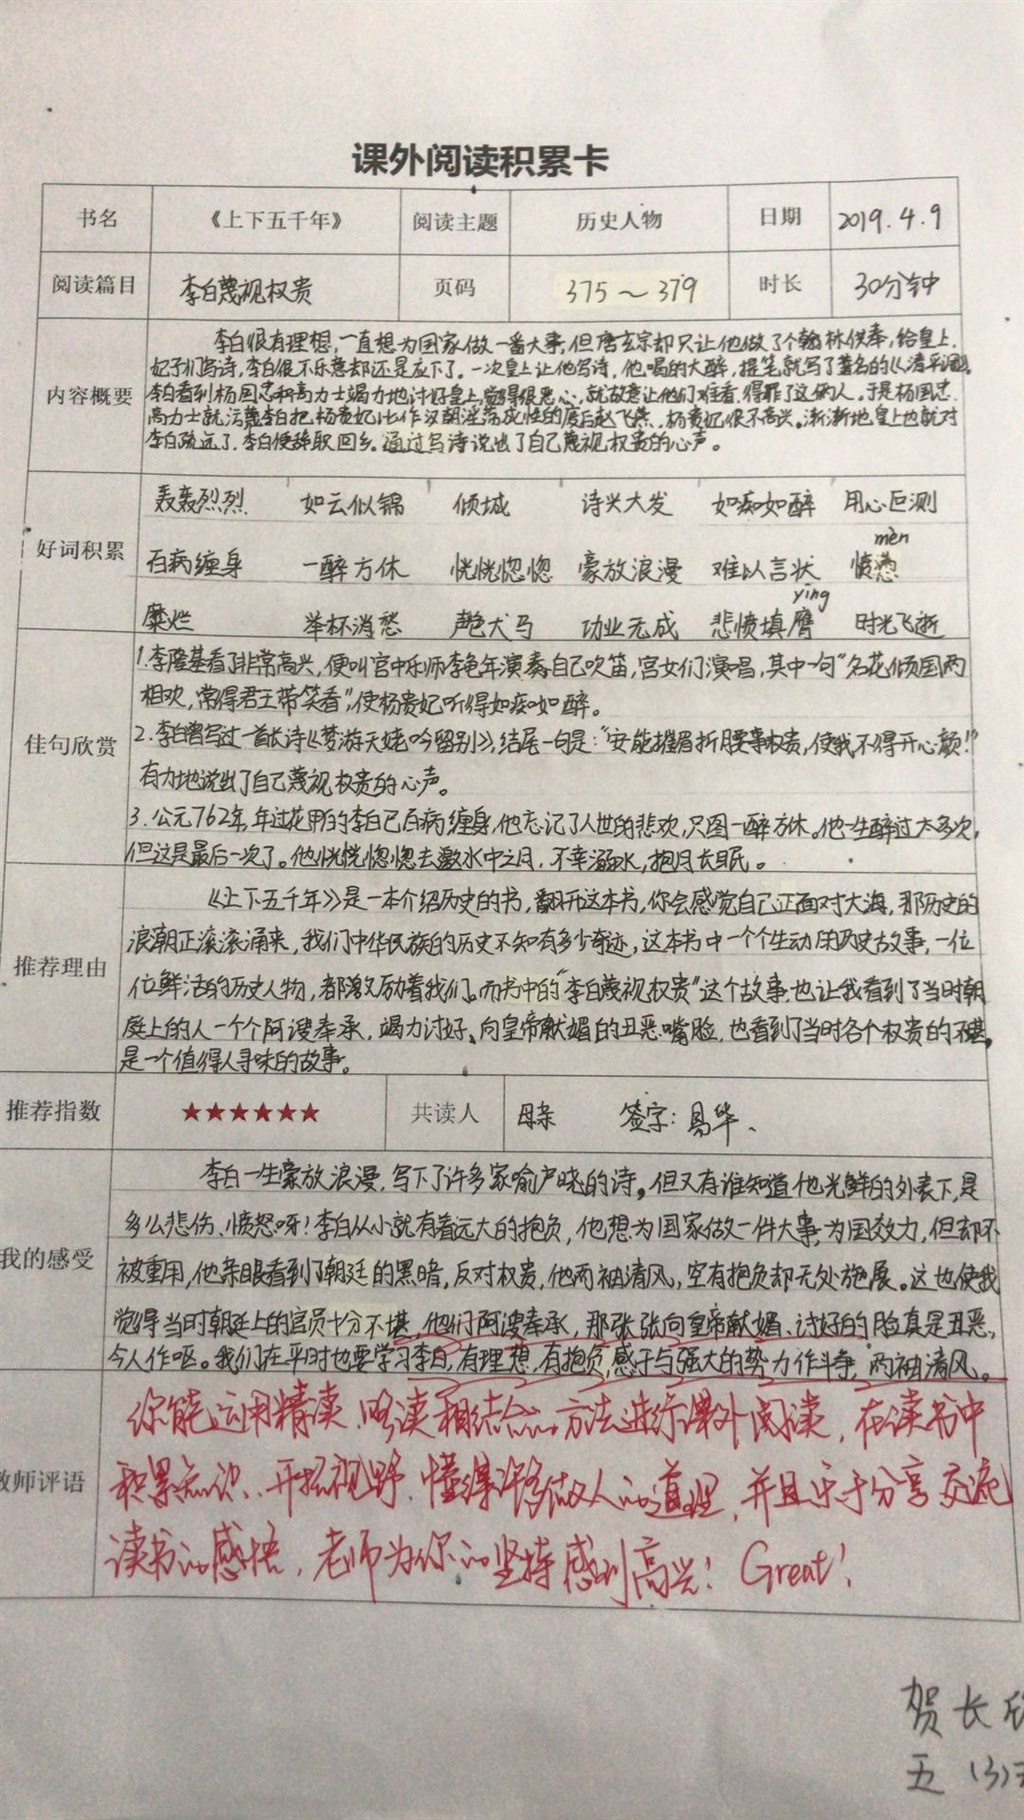 课外阅读积累卡
书名 《上下五千年》 阅读主题 历史人物 日期 2019.4.9
阅读篇目 李白蔑视权贵 页码 375～379 时长 30分钟
内容概要
李白很有理想,一直想为国家做一番大事,但唐玄宗却只让他做了个翰林供奉,给皇上、
妃子们写诗,李白很不乐意却还是应下了。一次皇上让他写诗,他喝的大醉,提笔就写了著名的《清平调》。
李白看到杨国忠和高力士竭力地讨好皇上,觉得很恶心,就故意让他们难看,得罪了这俩人。于是杨国忠、
高力士就污蔑李白把杨贵妃比作汉朝淫荡成性的废后赵飞燕,杨贵妃很不高兴。渐渐地皇上也就对
李白疏远了,李白便辞职回乡。通过写诗说出了自己蔑视权贵的心声。
好词积累
轰轰烈烈 如云似锦 倾城 诗兴大发 如痴如醉 用心叵测
mèn
百病缠身 一醉方休 恍恍惚惚 豪放浪漫 难以言状 愤懑
yīng
糜烂 举杯消愁 声色犬马 功业无成 悲愤填膺 时光飞逝
佳句欣赏
1.李隆基看了非常高兴,便叫宫中乐师李龟年演奏,自己吹笛,宫女们演唱,其中一句“名花倾国两
相欢,常得君王带笑看”,使杨贵妃听得如痴如醉。
2.李白曾写过一首长诗《梦游天姥吟留别》,结尾一句是:“安能摧眉折腰事权贵,使我不得开心颜!”
有力地说出了自己蔑视权贵的心声。
3.公元762年,年过花甲的李白已百病缠身,他忘记了人世的悲欢,只图一醉方休。他一生醉过太多次,
但这是最后一次了。他恍恍惚惚去邀水中之月,不幸溺水,抱月长眠。
推荐理由
《上下五千年》是一本介绍历史的书,翻开这本书,你会感觉自己正面对大海,那历史的
浪潮正滚滚涌来,我们中华民族的历史不知有多少奇迹,这本书中一个个生动的历史故事,一位
位鲜活的历史人物,都激励着我们。而书中的“李白蔑视权贵”这个故事,也让我看到了当时朝
庭上的人一个个阿谀奉承,竭力讨好、向皇帝献媚的丑恶嘴脸,也看到了当时各个权贵的不堪。
是一个值得人寻味的故事。
推荐指数 ★★★★★★ 共读人 母亲 签字:易华、
我的感受
李白一生豪放浪漫,写下了许多家喻户晓的诗。但又有谁知道他光鲜的外表下,是
多么悲伤、愤怒呀!李白从小就有着远大的抱负,他想为国家做一件大事,为国效力,但却不
被重用,他亲眼看到了朝廷的黑暗,反对权贵,他两袖清风,空有抱负却无处施展。这也使我
觉得当时朝廷上的官员十分不堪,他们阿谀奉承,那张张向皇帝献媚、讨好的脸真是丑恶,
令人作呕。我们在平时也要学习李白,有理想,有抱负,感于与强大的势力作斗争,两袖清风。
教师评语
你能运用精读、略读相结合的方法进行课外阅读,在读书中
积累知识、开拓视野、懂得许多做人的道理,并且乐于分享交流
读书的感悟,老师为你的坚持感到高兴!Great!
贺长
五(3)